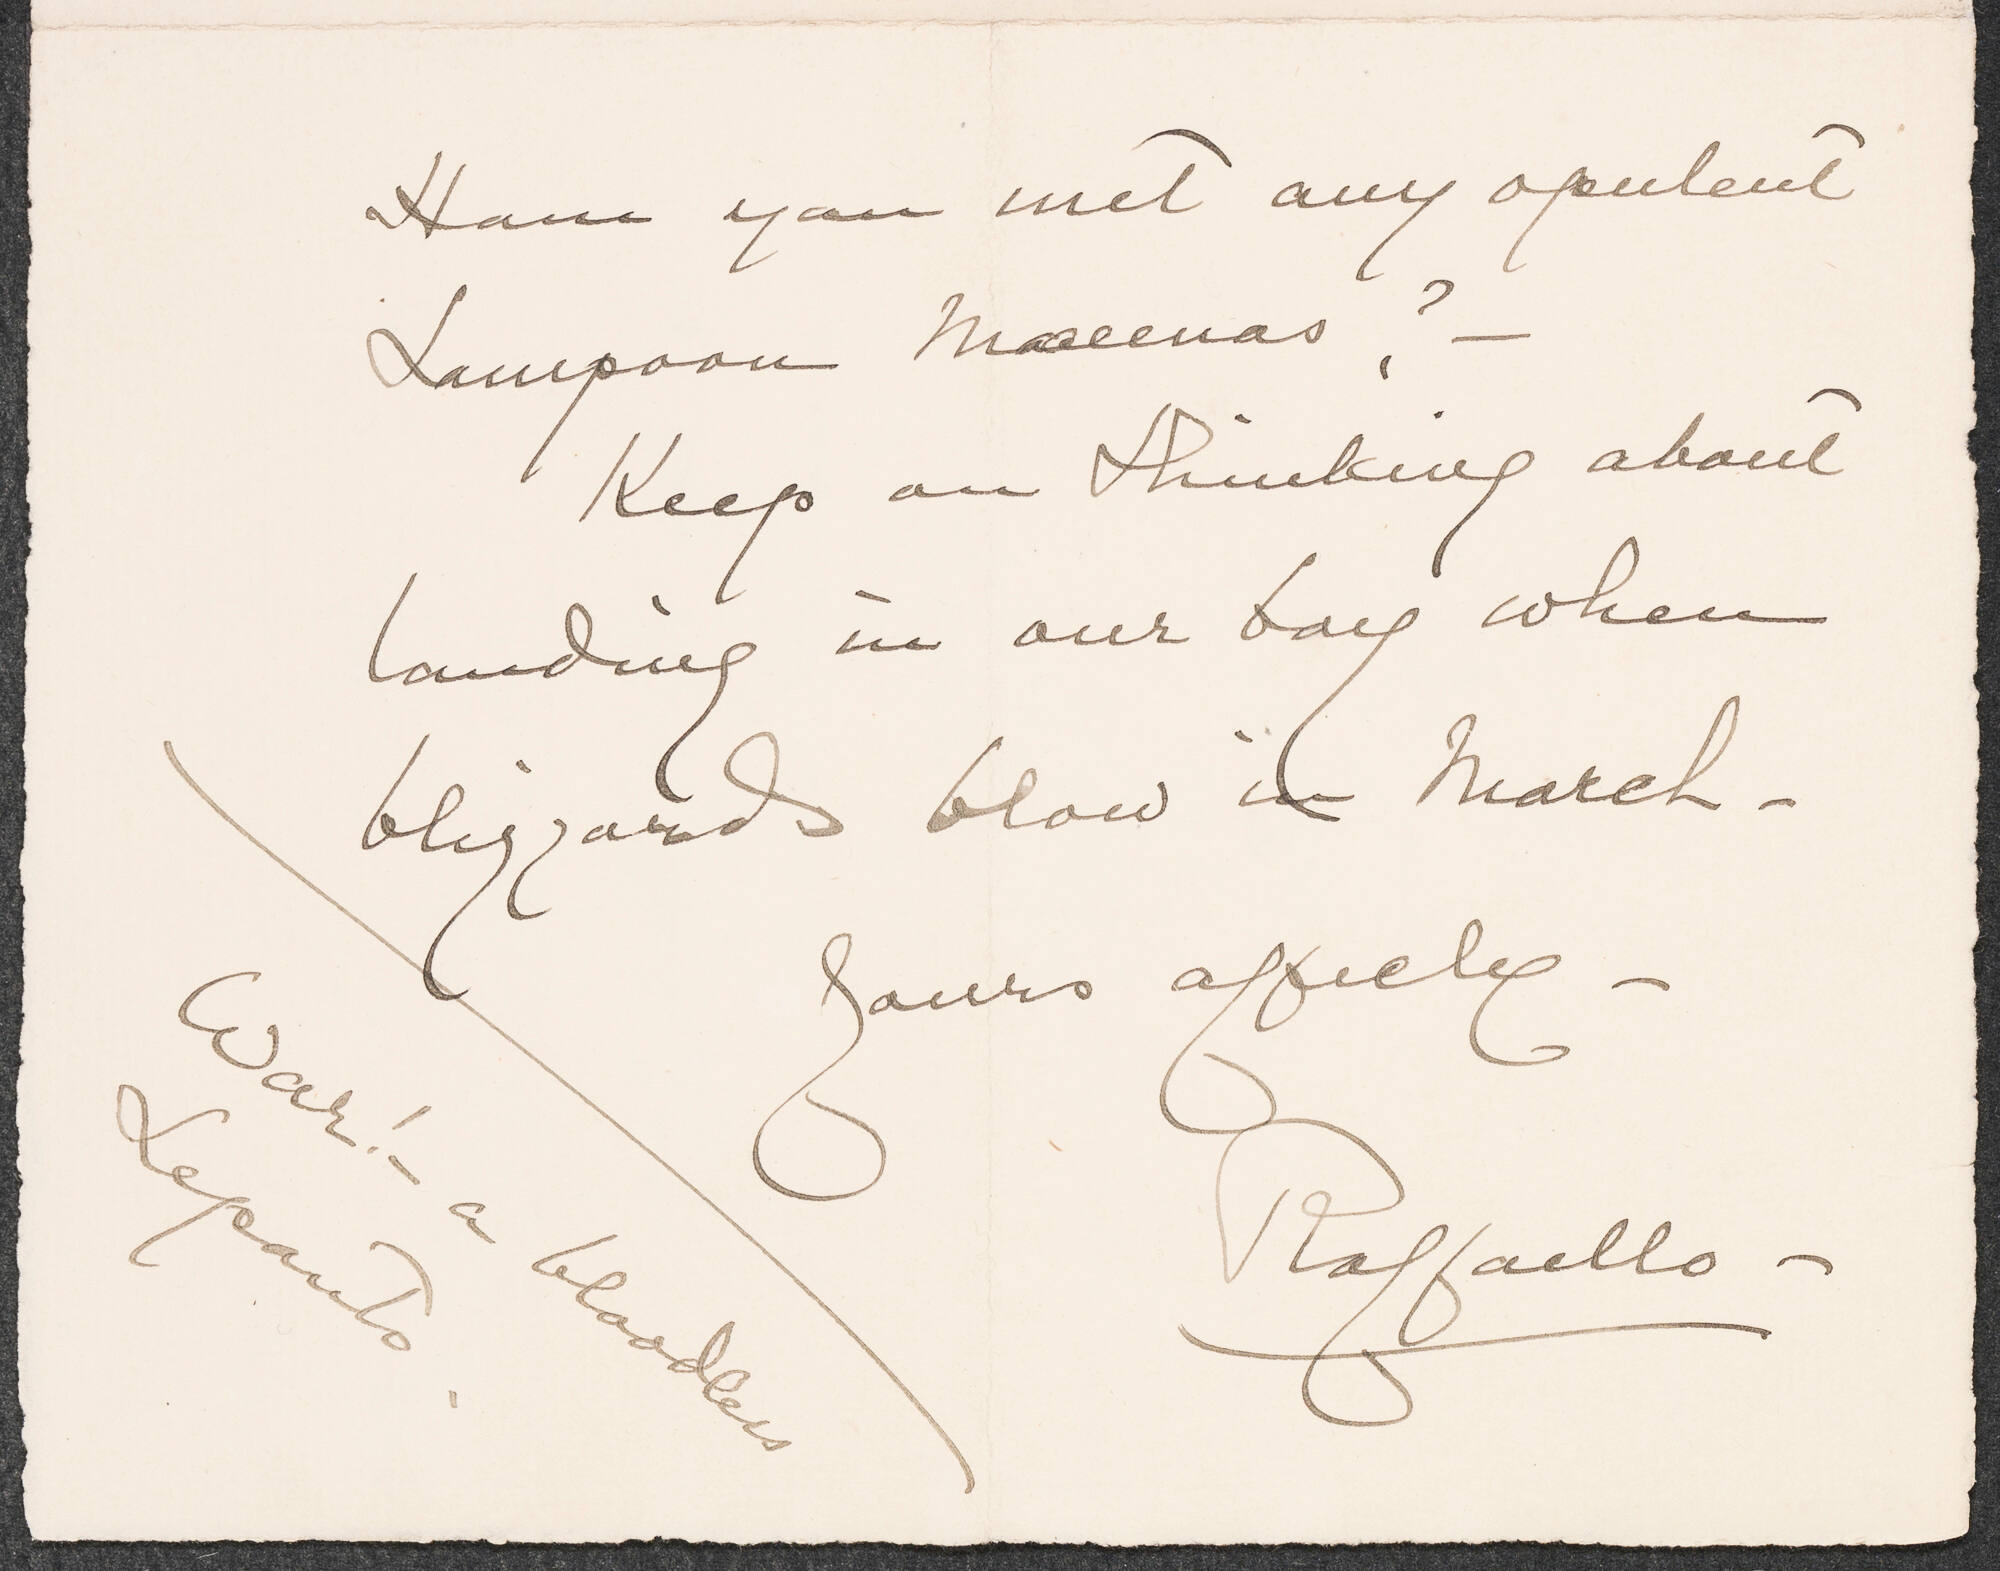 Have you met any opulent
Lampoon Maecenas? —
Keep on thinking about
landing in our bay when
blizzards blow in March —
Yours affectely —
Raffaello —
War! — a bloodless
Lepanto.